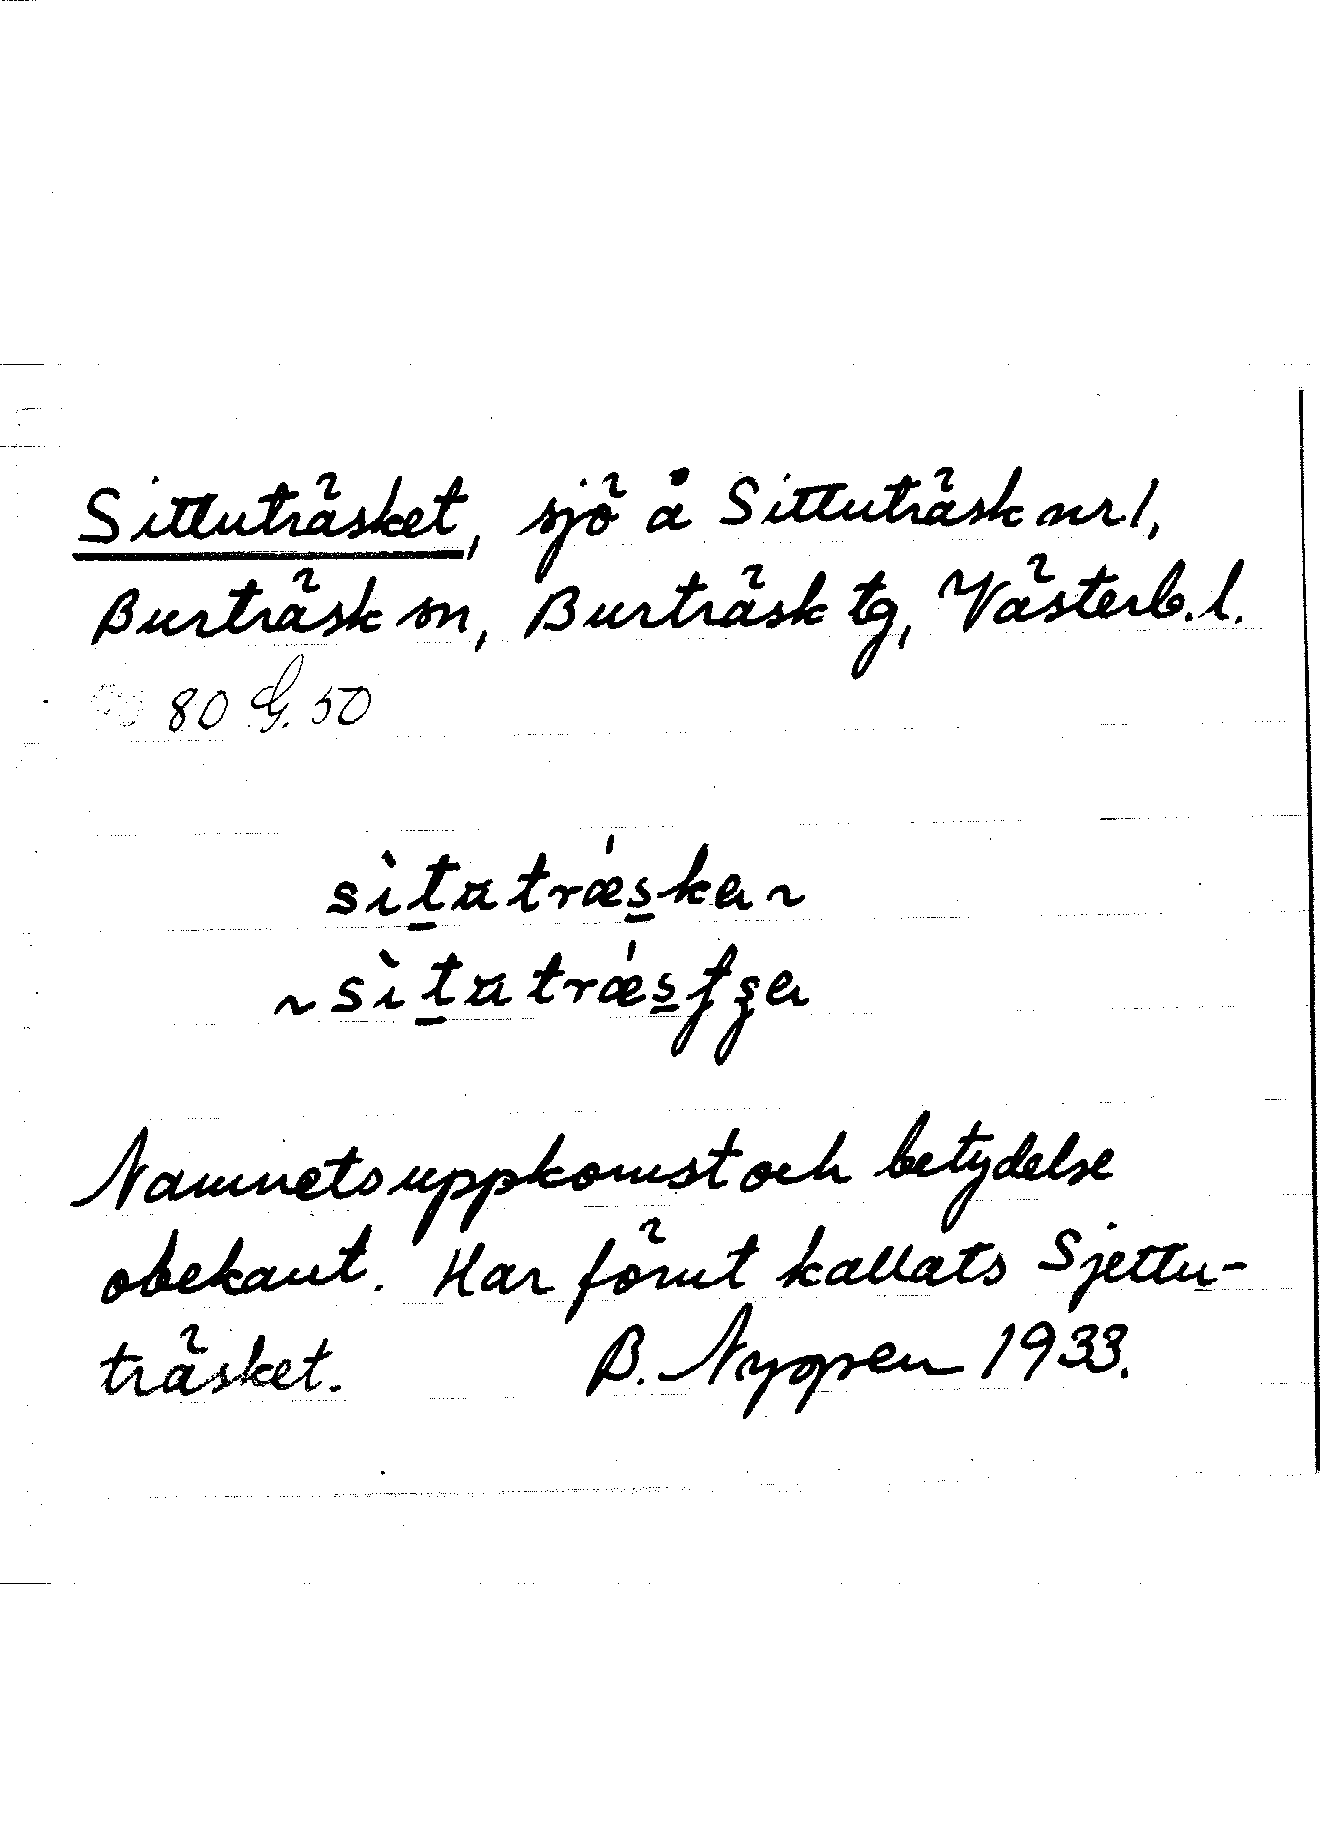 Sittuträsket, sjö å Sittuträsk nr 1,
Burträsk sn, Burträsk tg, Västerb. l.
80 G. 50
sìt̲ɯtrǽs̲ka ~
~ sìt̲ɯtrǽs̲ʄʒa
Namnets uppkomst och betydelse
obekant. Har förut kallats Sjettu-
träsket. B. Nygren 1933.